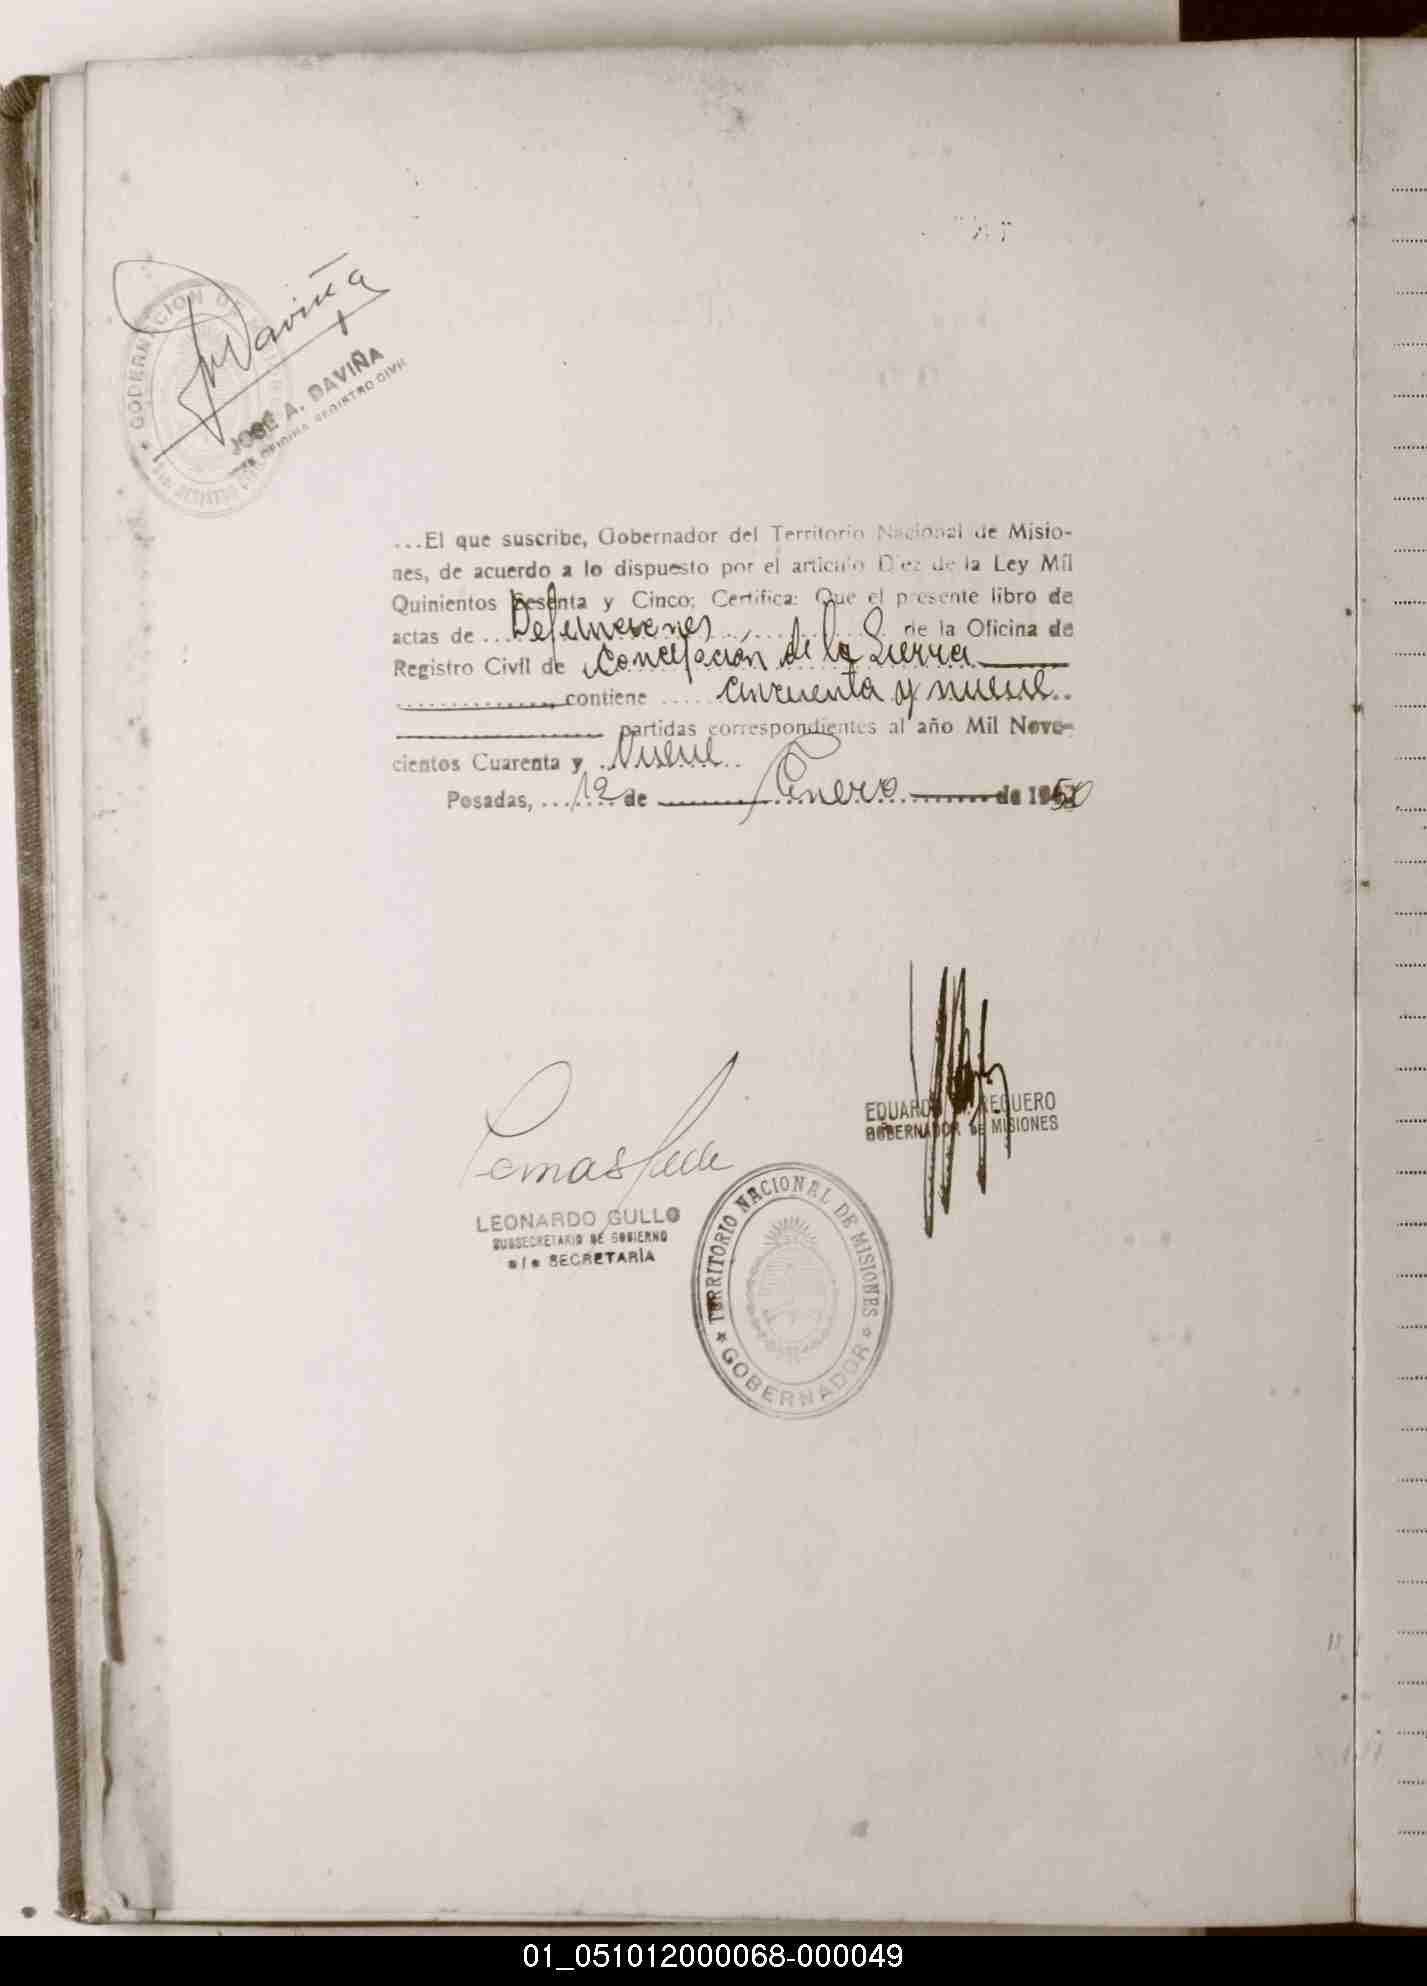 GOBERNACION DE
Daviña
JOSÉ A. DAVIÑA
OFICINA REGISTRO CIVIL
...El que suscribe, Gobernador del Territorio Nacional de Misio-
nes, de acuerdo a lo dispuesto por el artículo Diez de la Ley Mil
Quinientos Sesenta y Cinco; Certifica: Que el presente libro de
actas de ... Defunciones ... de la Oficina de
Registro Civil de Concepción de la Sierra
contiene ..... cincuenta y nueve..
partidas correspondientes al año Mil Nove-
cientos Cuarenta y .. Nueve ..
Posadas, ... 12 de Enero de 1950
EDUARDO REGUERO
GOBERNADOR DE MISIONES
LEONARDO GULLO
SUBSECRETARIO DE GOBIERNO
a/c SECRETARÍA
TERRITORIO NACIONAL DE MISIONES
* GOBERNADOR *
01_051012000068-000049